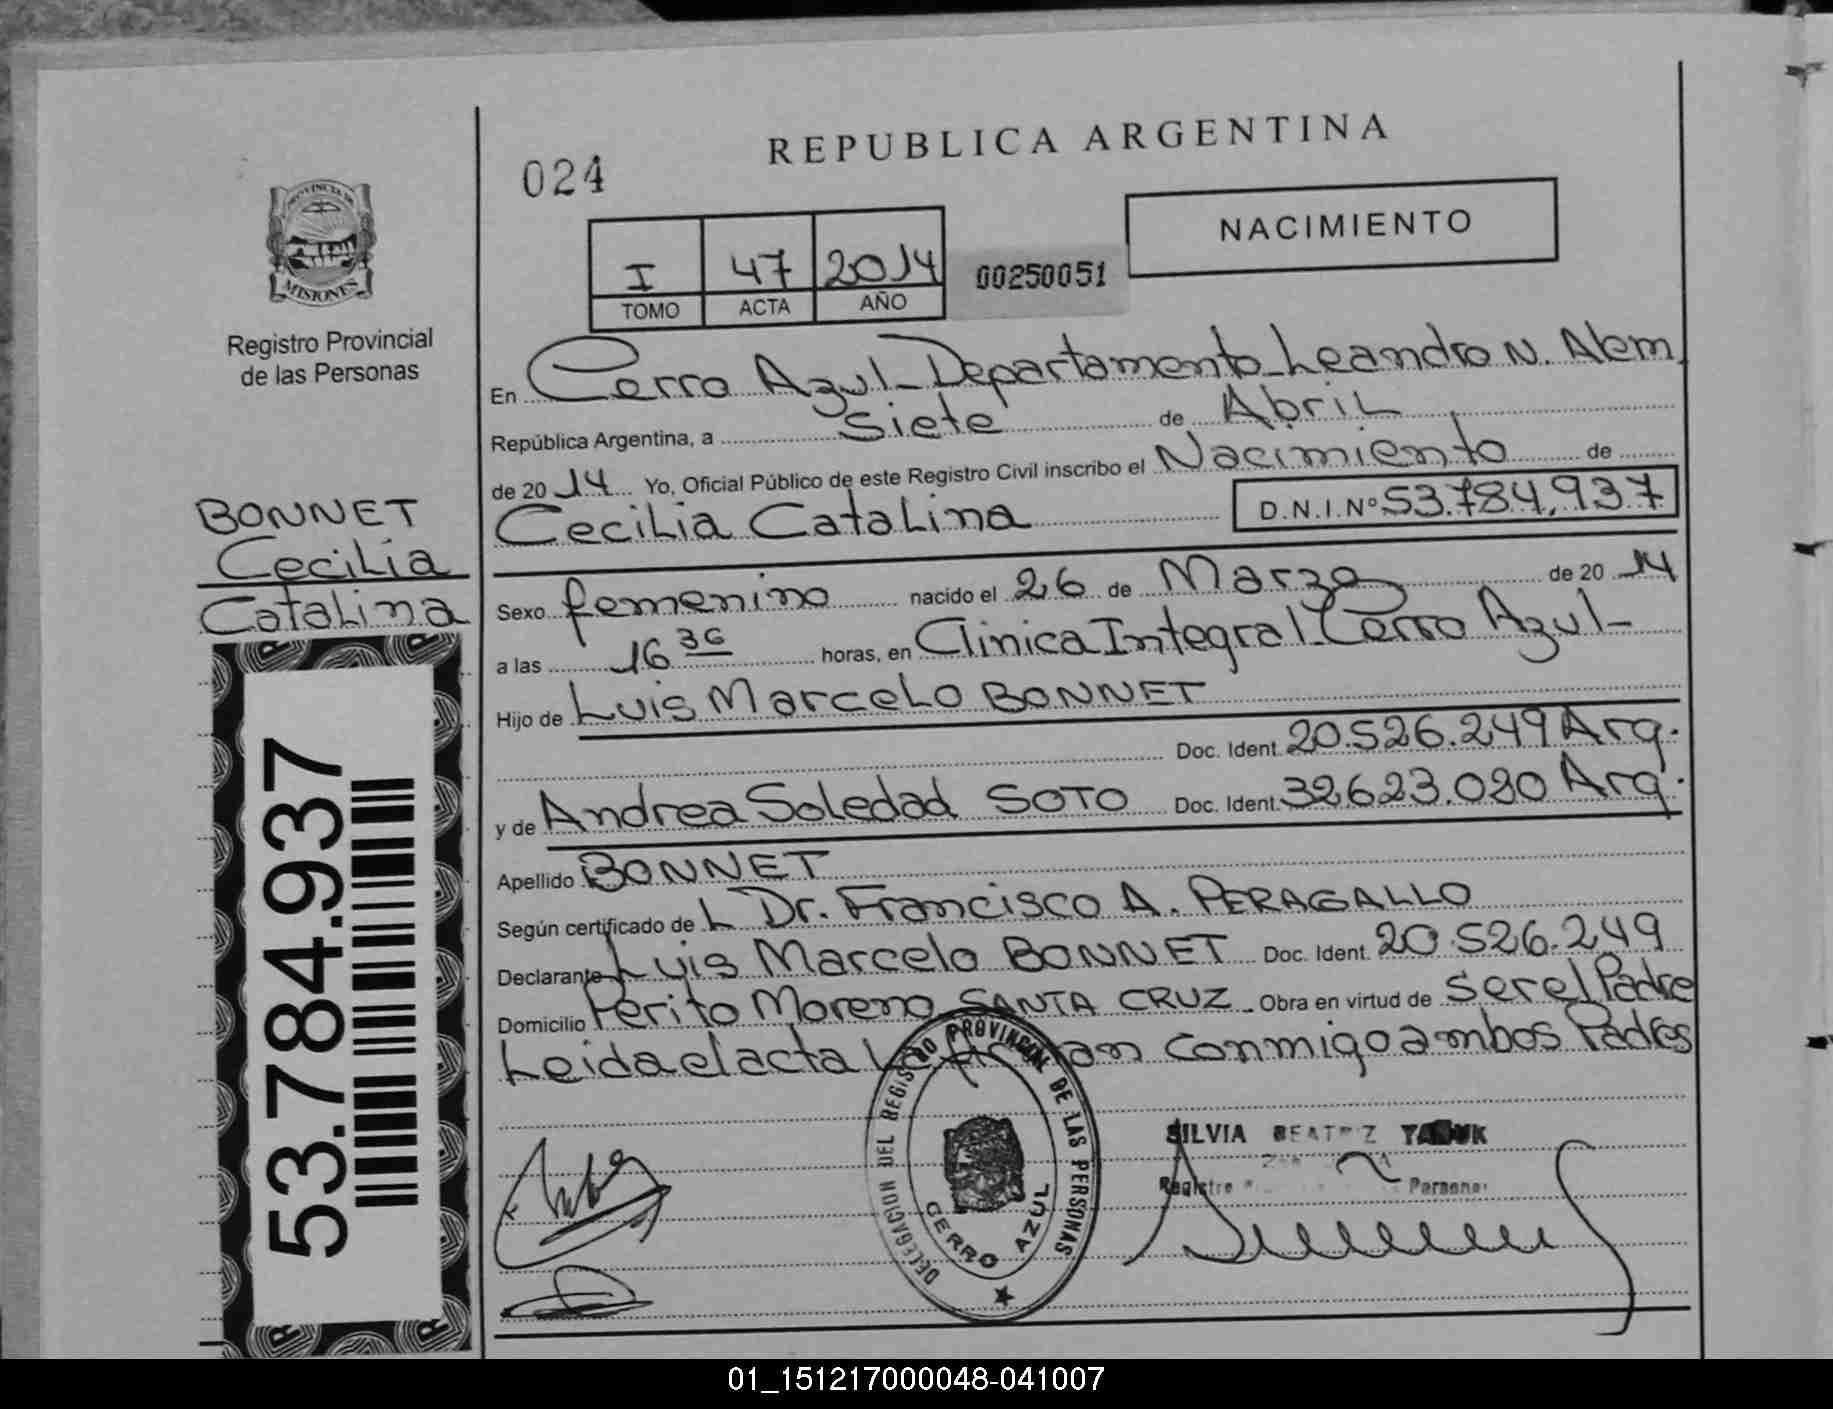 REPUBLICA ARGENTINA
024
NACIMIENTO
I 47 2014
TOMO ACTA AÑO
00250051
PROVINCIA DE
MISIONES
Registro Provincial
de las Personas
BONNET
Cecilia
Catalina
53.784.937
En Cerro Azul-Departamento-Leandro N. Alem,
República Argentina, a Siete de Abril
de 2014 Yo, Oficial Público de este Registro Civil inscribo el Nacimiento de
Cecilia Catalina D.N.I.Nº 53.784,937
Sexo femenino nacido el 26 de Marzo de 2014
a las 16 36 horas, en Clinica Integral-Cerro Azul-
Hijo de Luis Marcelo BONNET
Doc. Ident. 20.526.249 Arg.
y de Andrea Soledad SOTO Doc. Ident. 32623.080 Arg.
Apellido BONNET
Según certificado de L Dr. Francisco A. PERAGALLO
Declarante Luis Marcelo BONNET Doc. Ident. 20.526.249
Domicilio Perito Moreno SANTA CRUZ - Obra en virtud de ser el Padre
Leida el acta la firman conmigo ambos Padres
DELEGACION DEL REGISTRO PROVINCIAL DE LAS PERSONAS
CERRO AZUL
SILVIA BEATRIZ
Registro Personas
01_151217000048-041007